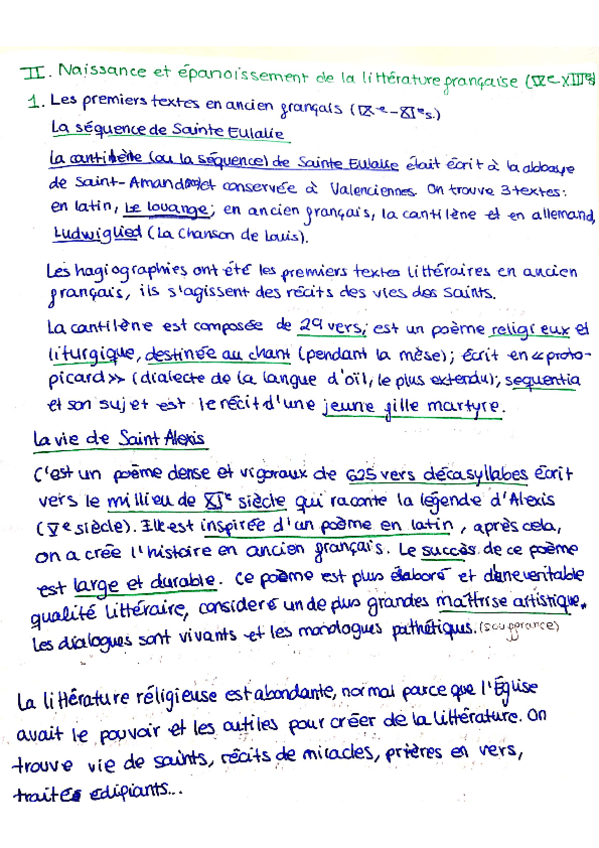 II. Naissance et épanoissement de la littérature française (IXe-XIIIe)
1. Les premiers textes en ancien français (IXe-XIes.)
La séquence de Sainte Eulalie
La cantilène (ou la séquence) de Sainte Eulalie était écrit à la abbaye
de Saint-Amand et conservée à Valenciennes. On trouve 3 textes:
en latin, Le louange; en ancien français, la cantilène et en allemand,
Ludwiglied (La chanson de Louis).
Les hagiographies ont été les premiers textes littéraires en ancien
français, ils s'agissent des récits des vies des saints.
La cantilène est composée de 29 vers; est un poème religieux et
liturgique, destinée au chant (pendant la mèse); écrit en «proto-
picard» (dialecte de la langue d'oïl, le plus extendu); sequentia
et son sujet est le récit d'une jeune fille martyre.
La vie de Saint Alexis
C'est un poème dense et vigoraux de 625 vers décasyllabes écrit
vers le millieu de XIe siècle qui raconte la légende d'Alexis
(Ve siècle). Il est inspirée d'un poème en latin, après cela,
on a crée l'histoire en ancien français. Le succès de ce poème
est large et durable. Ce poème est plus élaboré et d'une veritable
qualité littéraire, considéré un de plus grandes maîtrise artistique.
Les dialogues sont vivants et les monologues pathétiques. (souffrance)
La littérature réligieuse est abondante, normal parce que l'Église
avait le pouvoir et les outiles pour créer de la littérature. On
trouve vie de saints, récits de miracles, prières en vers,
traités edifiants...